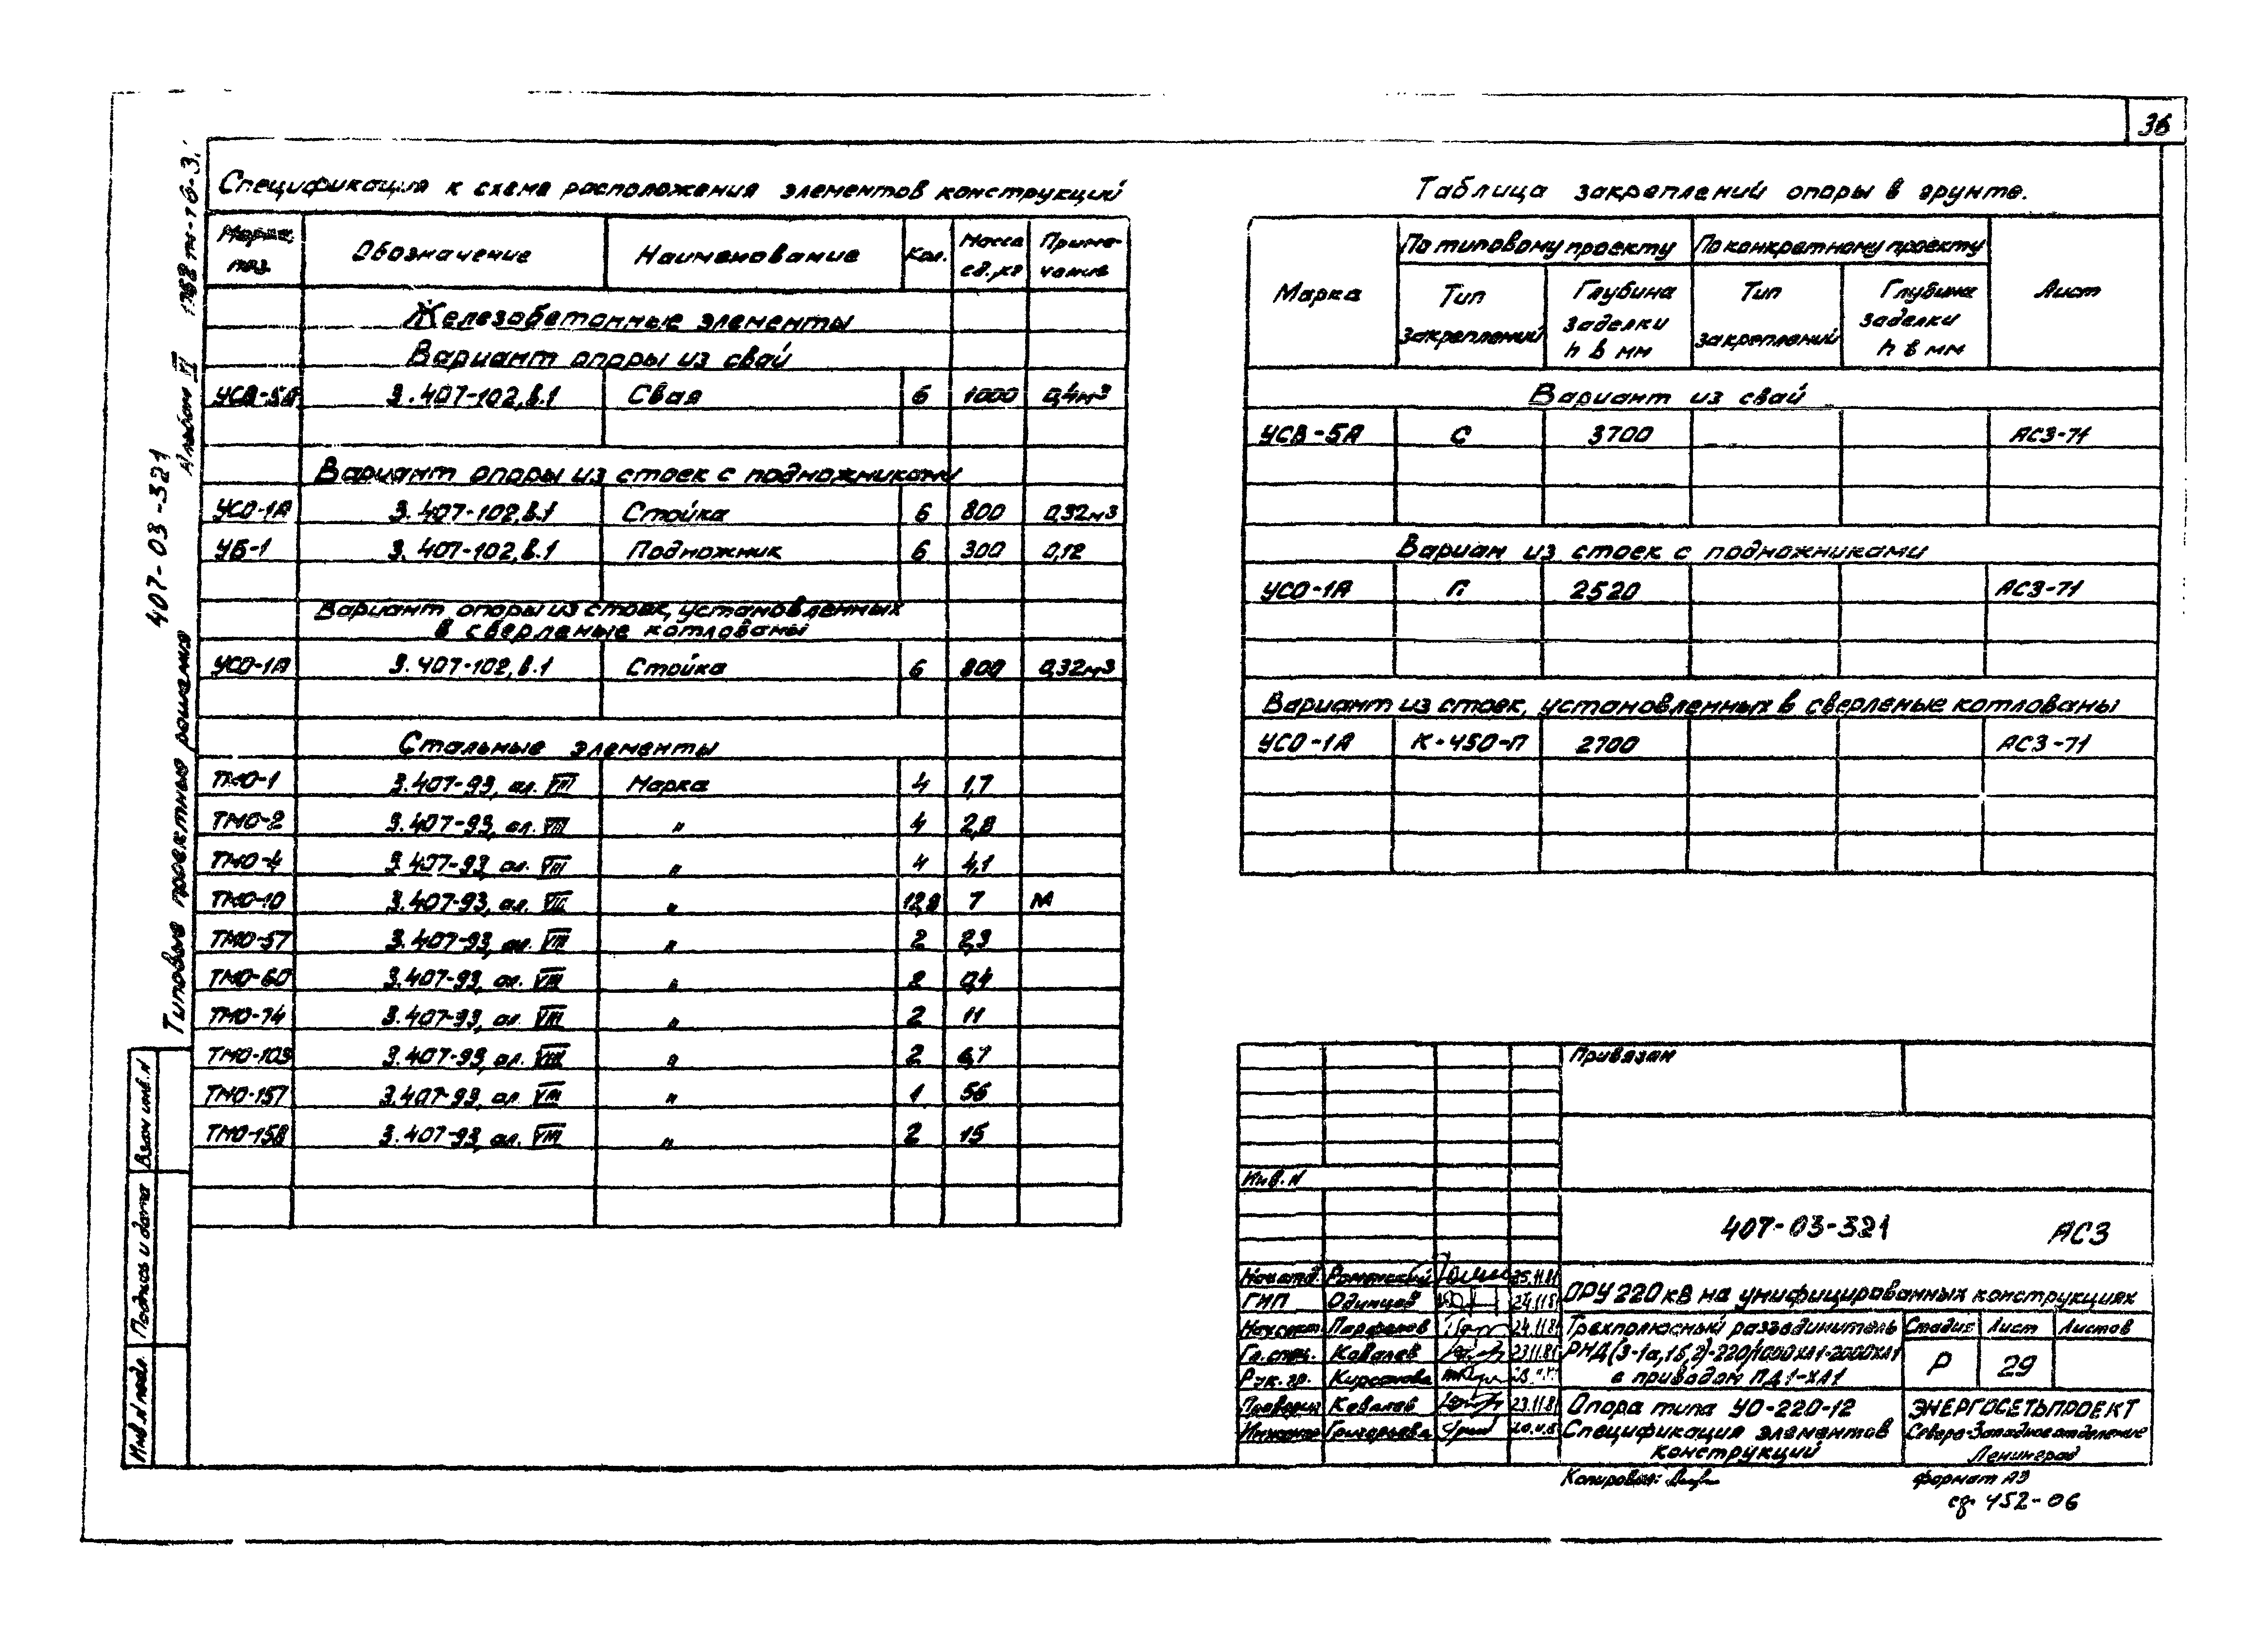 36
Спецификация к схеме расположения элементов конструкций
Марка, поз. Обозначение Наименование Кол. Масса ед., кг Примечание
Железобетонные элементы
Вариант опоры из свай
УСВ-5А 3.407-102, в.1 Свая 6 1000 0,4м3
Вариант опоры из стоек с подножниками
УСО-1А 3.407-102, в.1 Стойка 6 800 0,32м3
УБ-1 3.407-102, в.1 Подножник 6 300 0,12
Вариант опоры из стоек, установленных
в сверленые котлованы
УСО-1А 3.407-102, в.1 Стойка 6 800 0,32м3
Стальные элементы
ТМО-1 3.407-93, ал. VIII Марка 4 1,7
ТМО-2 3.407-93, ал. VIII " 4 2,8
ТМО-4 3.407-93, ал. VIII " 4 4,1
ТМО-10 3.407-93, ал. VIII " 12,8 7 м
ТМО-57 3.407-93, ал. VIII " 2 2,3
ТМО-60 3.407-93, ал. VIII " 2 0,4
ТМО-74 3.407-93, ал. VIII " 2 11
ТМО-103 3.407-93, ал. VIII " 2 6,7
ТМО-157 3.407-93, ал. VIII " 1 56
ТМО-158 3.407-93, ал. VIII " 2 15
Таблица закреплений опоры в грунте.
Марка По типовому проекту По конкретному проекту Лист
Тип закреплений Глубина заделки h в мм Тип закреплений Глубина заделки h в мм
Вариант из свай
УСВ-5А С 3700 АС3-71
Вариан из стоек с подножниками
УСО-1А П 2520 АС3-71
Вариант из стоек, установленных в сверленые котлованы
УСО-1А К-450-П 2700 АС3-71
Типовые проектные решения 407-03-321
Альбом VI
Взам инв. N
Подпись и дата
Инв. N подл.
Привязан
Инв. N
407-03-321 АС3
Нач отд Роменский 25.11.81
ГИП Одинцов 24.11.81
24.11.81
Гл. спец. Ковалев 23.11.81
Рук. гр. Кирсанова
Ковалев 23.11.81
Инженер Григорьева
ОРУ 220 кВ на унифицированных конструкциях
Трехполюсный разъединитель
РНД(З-1а,1б,2)-220/1000ХЛ1-2000ХЛ1
с приводом ПД1-ХЛ1
Стадия Лист Листов
Р 29
Опора типа УО-220-12
Спецификация элементов
конструкций
ЭНЕРГОСЕТЬПРОЕКТ
Северо-Западное отделение
Ленинград
Копировал:
формат А3
сф 452-06